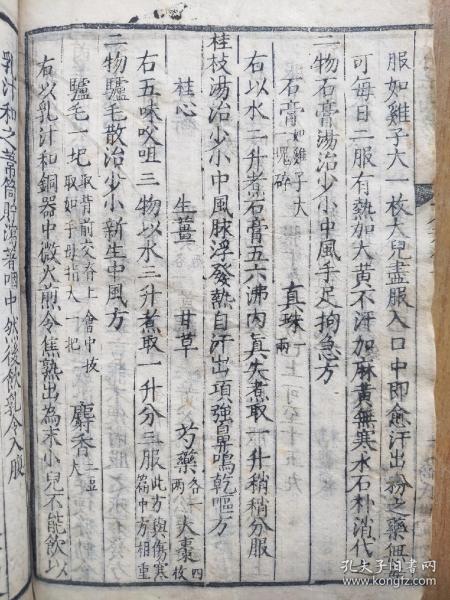 服如雞子大一枚大兒盡服入口中即愈汗出粉之藥無
可每日二服有熱加大黃不汗加麻黃無寒水石朴消代
二物石膏湯治少小中風手足拘急方
石膏如雞子大一塊碎 真珠一兩
右以水二升煮石膏五六沸内真朱煮取一升稍稍分服
桂枝湯治少小中風脉浮發熱自汗出項強鼻鳴乾嘔方
桂心 生薑 甘草 芍藥各一兩 大棗四枚
右五味㕮咀三物以水三升煮取一升分三服此方與傷寒篇中方相重
二物驢毛散治少小新生中風方
驢毛一把取背前交脊上會中拔取如手母指大一把 麝香二豆大
右以乳汁和銅器中微火煎令焦熟出為末小兒不能飲以
乳汁和之葦筒貯瀉著咽中然後飲乳令入腹
孔夫子旧书网